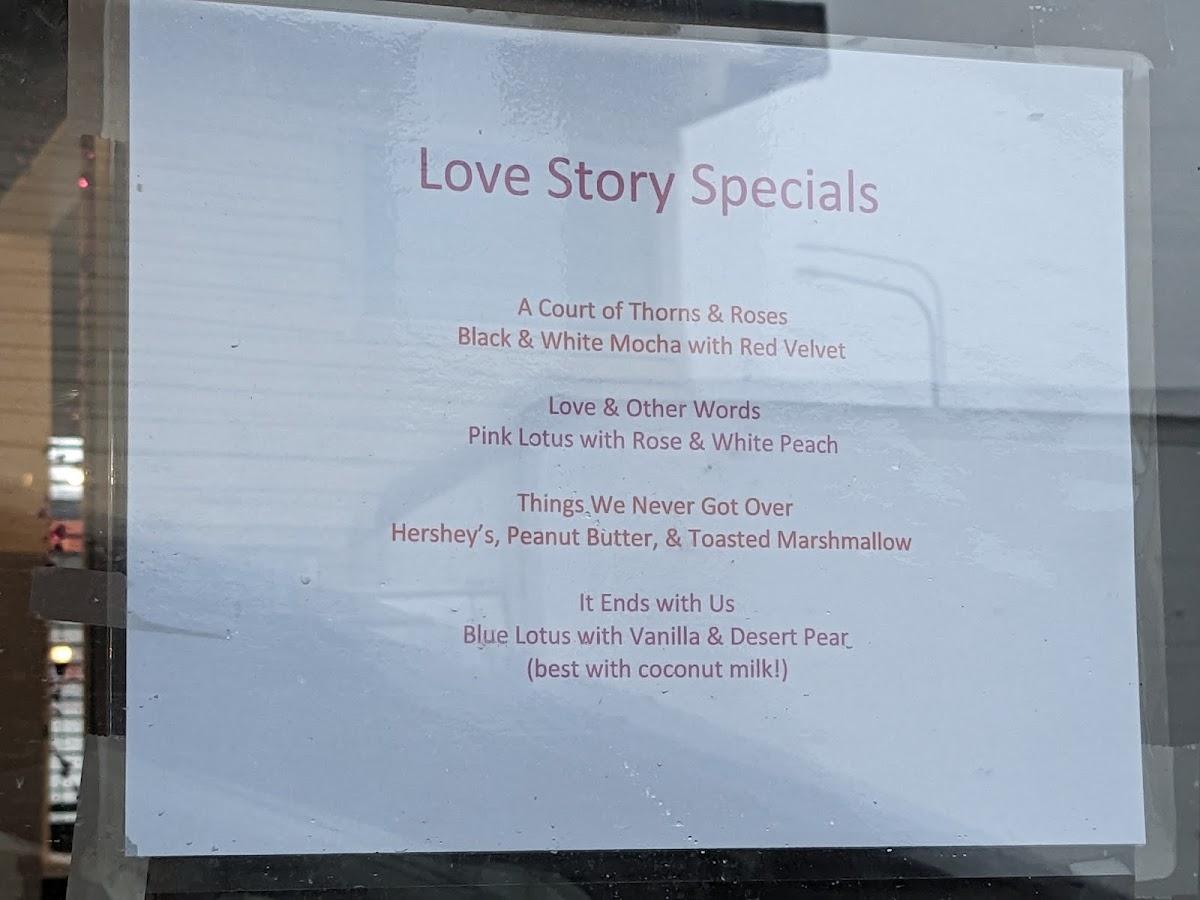 Love Story Specials
A Court of Thorns & Roses
Black & White Mocha with Red Velvet
Love & Other Words
Pink Lotus with Rose & White Peach
Things We Never Got Over
Hershey’s, Peanut Butter, & Toasted Marshmallow
It Ends with Us
Blue Lotus with Vanilla & Desert Pear
(best with coconut milk!)